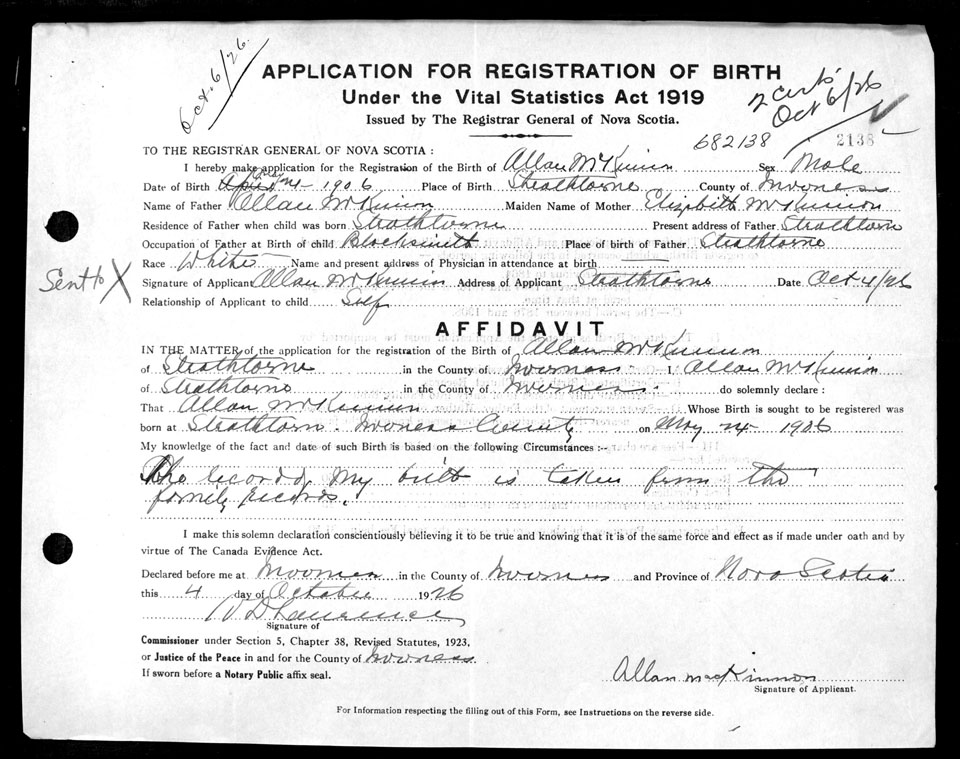 Oct. 6/26.
APPLICATION FOR REGISTRATION OF BIRTH
Under the Vital Statistics Act 1919
Issued by The Registrar General of Nova Scotia.
2 certs
Oct 6/26
682138
2138
TO THE REGISTRAR GENERAL OF NOVA SCOTIA:
I hereby make application for the Registration of the Birth of Allan McKinnon Sex Male
Date of Birth 1906 Place of Birth Strathlorne County of Inverness
Name of Father Allan McKinnon Maiden Name of Mother Elizabeth McKinnon
Residence of Father when child was born Strathlorne Present address of Father Strathlorn
Occupation of Father at Birth of child Blacksmith Place of birth of Father Strathlorne
Race White Name and present address of Physician in attendance at birth
Sent to X
Signature of Applicant Allan McKinnon Address of Applicant Strathlorne Date Oct 4/26
Relationship of Applicant to child Self
AFFIDAVIT
IN THE MATTER of the application for the registration of the Birth of Allan McKinnon
of Strathlorne in the County of Inverness I, Allan McKinnon
of Strathlorne in the County of Inverness do solemnly declare:
That Allan McKinnon Whose Birth is sought to be registered was
born at Strathlorn Inverness County on May 24 1906
My knowledge of the fact and date of such Birth is based on the following Circumstances:—
The record my birth is taken from the
family records.
I make this solemn declaration conscientiously believing it to be true and knowing that it is of the same force and effect as if made under oath and by
virtue of The Canada Evidence Act.
Declared before me at Inverness in the County of Inverness and Province of Nova Scotia
this 4 day of October 1926
D Lawrence
Signature of
Commissioner under Section 5, Chapter 38, Revised Statutes, 1923,
or Justice of the Peace in and for the County of Inverness.
If sworn before a Notary Public affix seal.
Allan MacKinnon
Signature of Applicant.
For Information respecting the filling out of this Form, see Instructions on the reverse side.